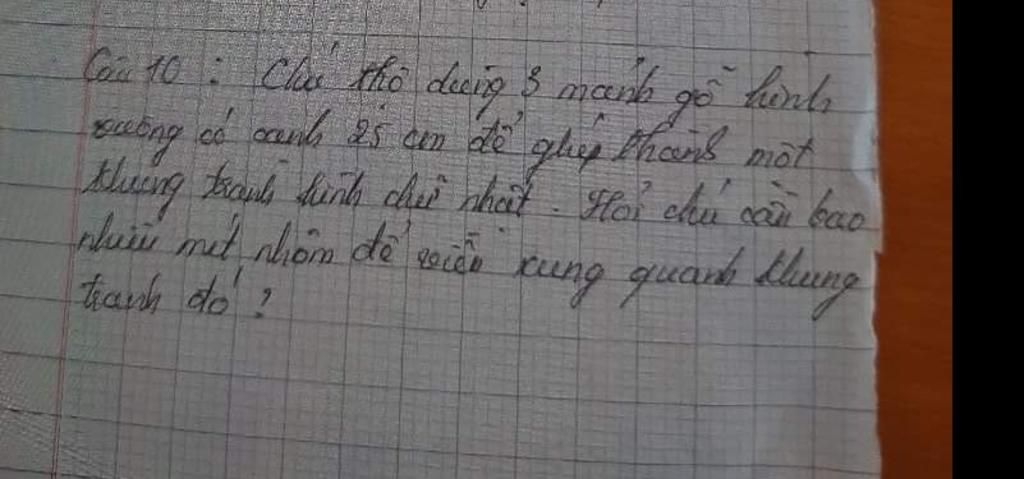 Câu 10 : Chú thợ dùng 3 mảnh gỗ hình
vuông có cạnh 25 cm để ghép thành một
khung tranh hình chữ nhật. Hỏi chú cần bao
nhiêu mét nhôm để viền xung quanh khung
tranh đó ?